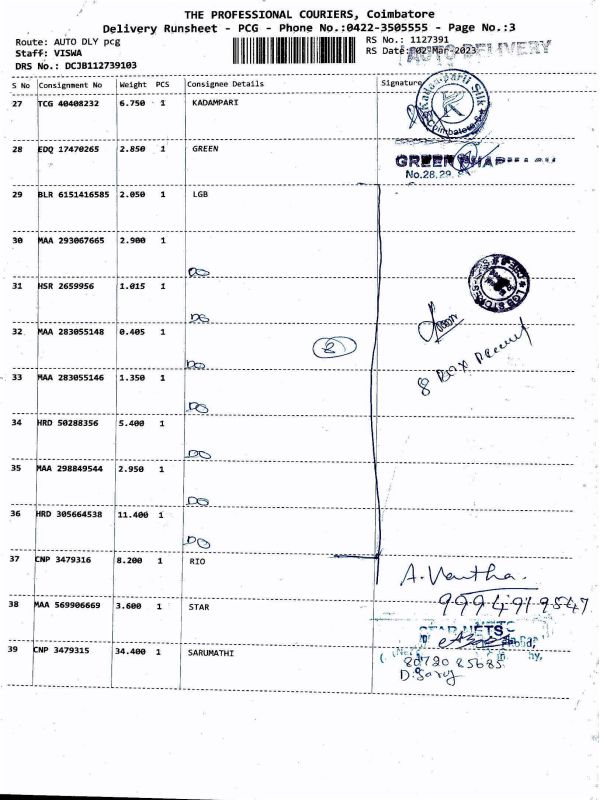 THE PROFESSIONAL COURIERS, Coimbatore
Delivery Runsheet - PCG - Phone No.:0422-3505555 - Page No.:3
Route: AUTO DLY pcg
RS No.: 1127391
Staff: VISWA
RS Date: 02-Mar-2023
AUTO DELIVERY
DRS No.: DCJB112739103
S No Consignment No Weight PCS Consignee Details Signature
27 TCG 40408232 6.750 1 KADAMPARI
Kadampari Silk
K
Coimbatore
28 EDQ 17470265 2.850 1 GREEN
GREEN
No.28,29,
29 BLR 6151416585 2.050 1 LGB
30 MAA 293067665 2.900 1
DO
LGB STORES
31 HSR 2659956 1.015 1
DO
32 MAA 283055148 0.405 1
8
8 Box
DO
33 MAA 283055146 1.350 1
DO
34 HRD 50288356 5.400 1
DO
35 MAA 298849544 2.950 1
DO
36 HRD 305664538 11.400 1
DO
37 CNP 3479316 8.200 1 RIO
A. Vantha.
9994919547
38 MAA 569906669 3.600 1 STAR
STAR NETS
39 CNP 3479315 34.400 1 SARUMATHI
8072085685